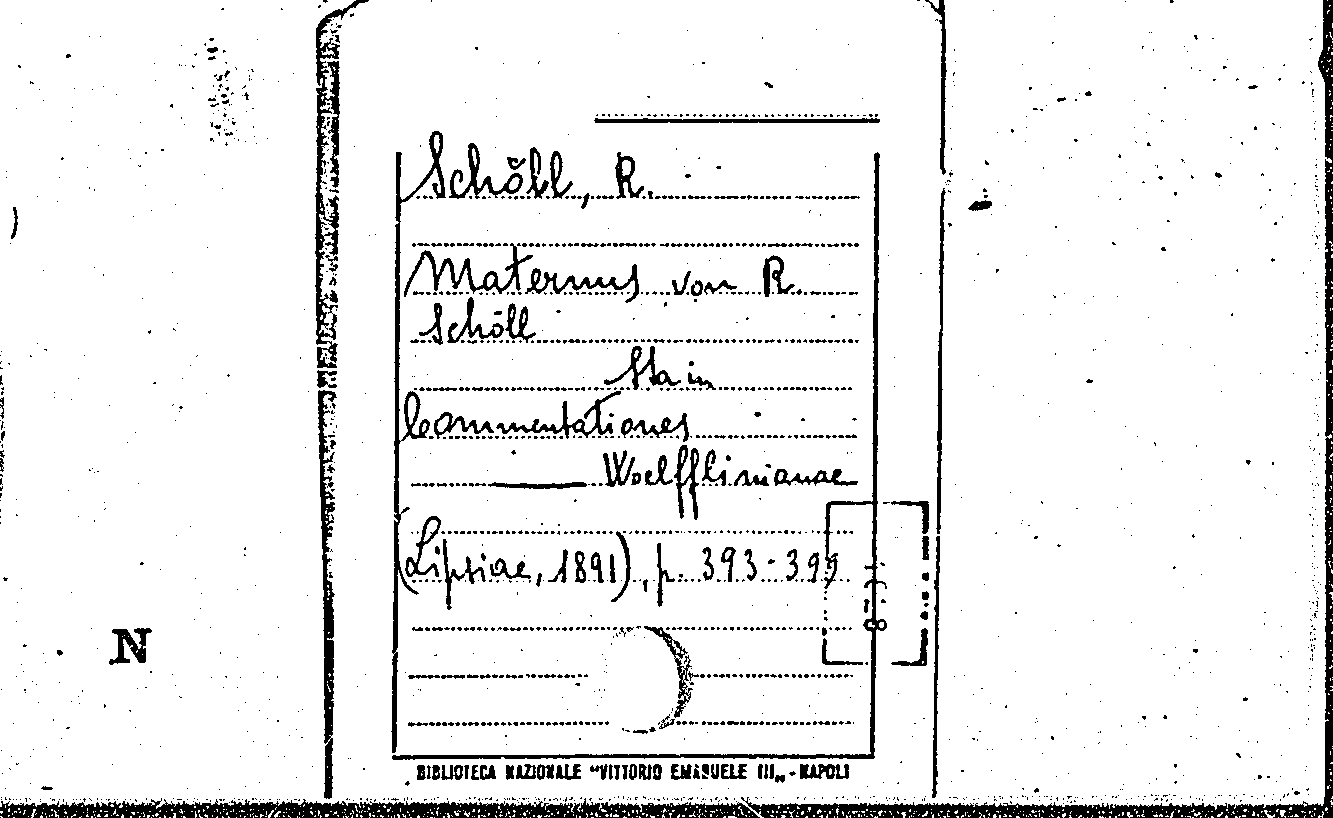 Schöll, R.
Maternus von R.
Schöll
Sta in
Commentationes
Woelfflinianae
(Lipsiae, 1891), p. 393-399
N
BIBLIOTECA NAZIONALE "VITTORIO EMANUELE III„ - NAPOLI